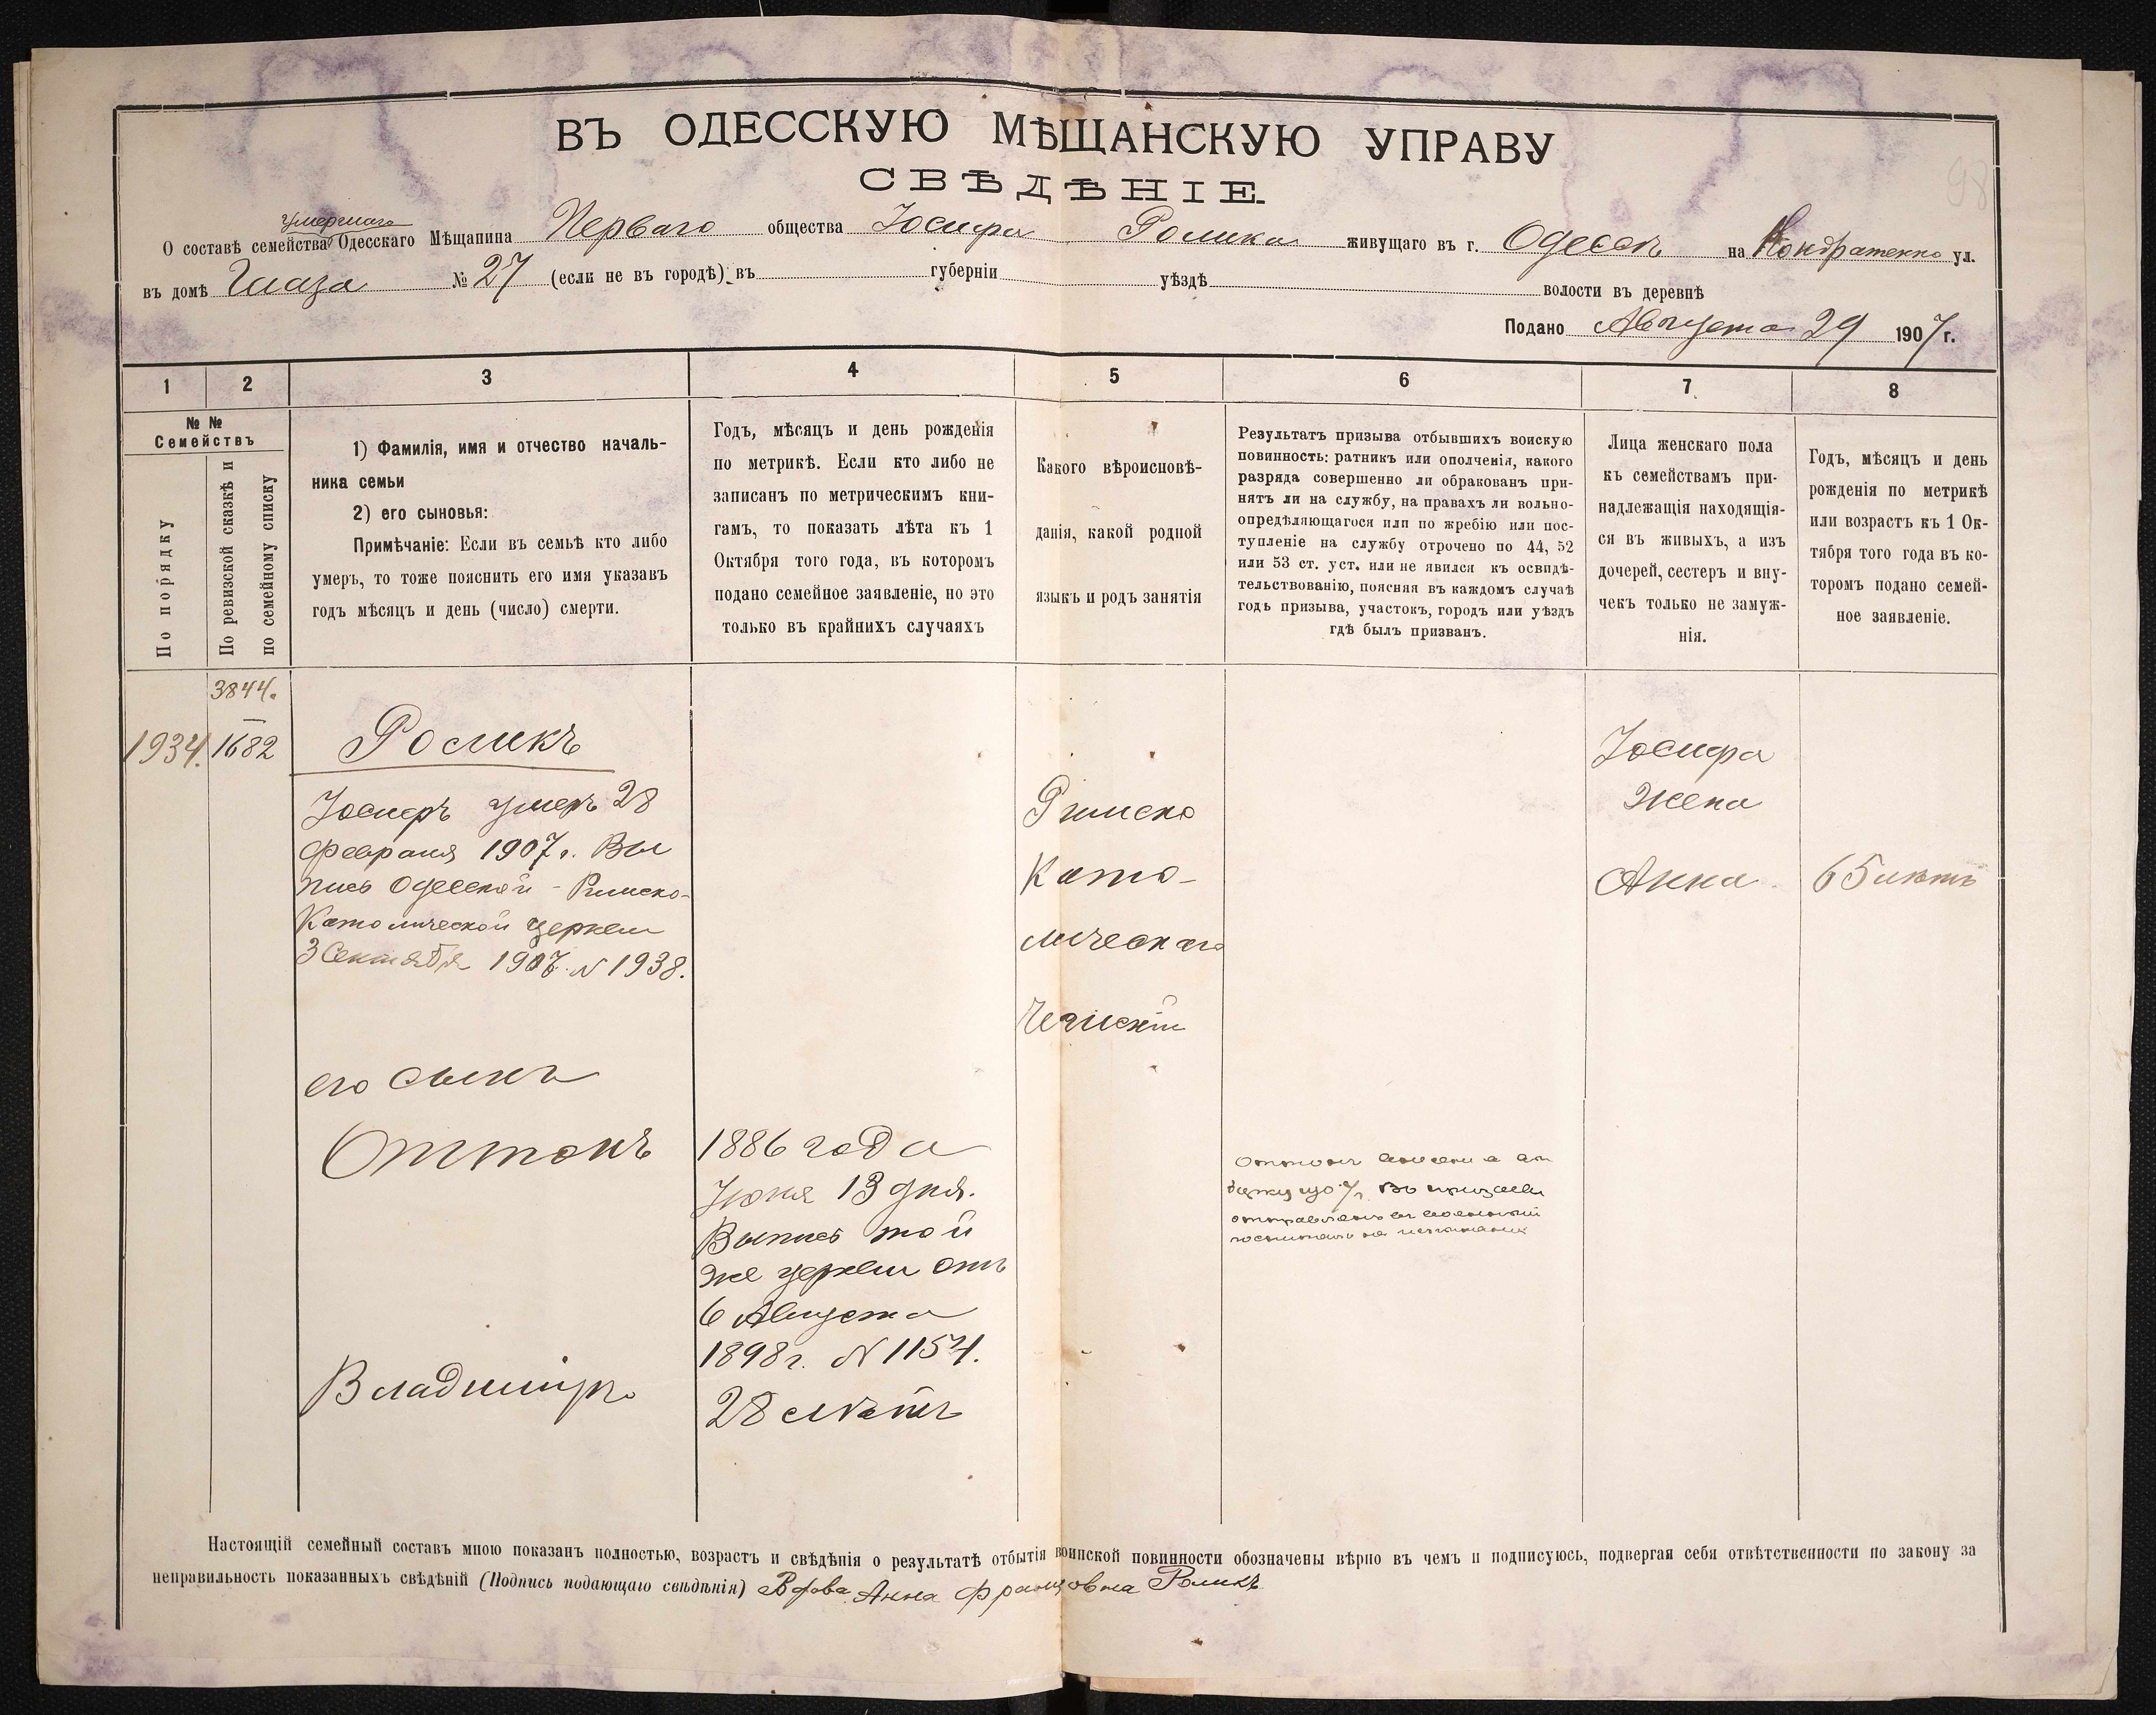 ВЪ ОДЕССКУЮ МѢЩАНСКУЮ УПРАВУ
СВѢДѢНІЕ.
98
умершаго
О составѣ семейства Одесскаго Мѣщанина Перваго общества Іосифа Ролика живущаго въ г. Одессѣ на Кондратенко ул.
въ домѣ Глаза № 27 (если не въ городѣ) въ губерніи уѣздѣ волости въ деревнѣ
Подано Августа 29 1907 г.
1 2 3 4 5 6 7 8
№ №
Семействъ
По порядку
По ревизской сказкѣ и
по семейному списку
1) Фамилія, имя и отчество началь-
ника семьи
2) его сыновья:
Примѣчаніе: Если въ семьѣ кто либо
умеръ, то тоже пояснить его имя указавъ
годъ мѣсяцъ и день (число) смерти.
Годъ, мѣсяцъ и день рожденія
по метрикѣ. Если кто либо не
записанъ по метрическимъ кни-
гамъ, то показать лѣта къ 1
Октября того года, въ котором
подано семейное заявленіе, но это
только въ крайнихъ случаяхъ
Какого вѣроисповѣ-
данія, какой родной
языкъ и родъ занятія
Результатъ призыва отбывшихъ воискую
повинность: ратникъ или ополченія, какого
разряда совершенно ли обракованъ при-
нятъ ли на службу, на правахъ ли вольно-
опредѣляющагося илп по жребію или пос-
тупленіе на службу отрочено по 44, 52
или 53 ст. уст. или не явился къ освидѣ-
тельствованію, поясняя въ каждомъ случаѣ
годъ призыва, участокъ, городъ или уѣздъ
гдѣ былъ призванъ.
Лица женскаго пола
къ семействамъ при-
надлежащія находящія-
ся въ живыхъ, а изъ
дочерей, сестеръ и вну-
чекъ только не замуж-
нія.
Годъ, мѣсяцъ и день
рожденія по метрикѣ
или возрастъ къ 1 Ок-
тября того года въ ко-
торомъ подано семей-
ное заявленіе.
3844.
1934. 1682
Роликъ
Іосифъ умеръ 28
февраля 1907 г. Вы
пись Одесской - Римско-
Католической церкви
3 Сентября 1907 N 1938.
его сынъ
Оттонъ
Владиміръ
1886 года
Іюня 13 дня.
Выпись той
же церкви отъ
6 Августа
1898 г. N 1154.
28 лѣтъ
Римско
Като-
лическаго
Чешскій
Оттонъ
1907 г.
отправленъ въ военный
госпиталь на испытаніе
Іосифа
Жена
Анна
65 лѣтъ
Настоящій семейный составъ мною показанъ полностью, возрастъ и свѣдѣнія о результатѣ отбытія воинской повинности обозначены вѣрно въ чемъ и подписуюсь, подвергая себя отвѣтственности по закону за
неправильность показанныхъ свѣдѣній (Подпись подающаго свѣдѣнія) Вдова Анна Францовна Роликъ